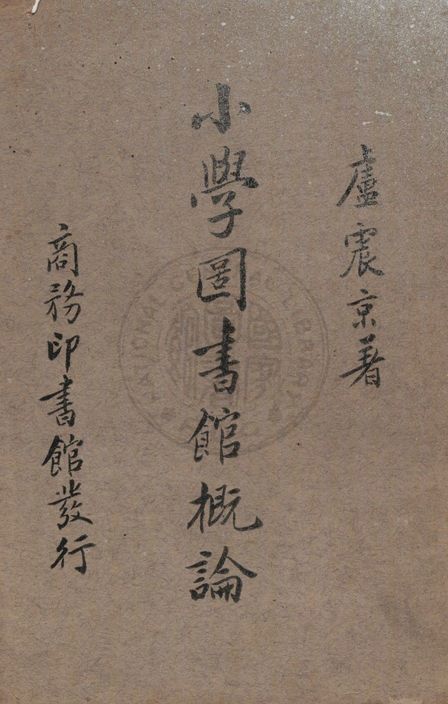 盧震京著
小學圕書館概論
商務印書館發行